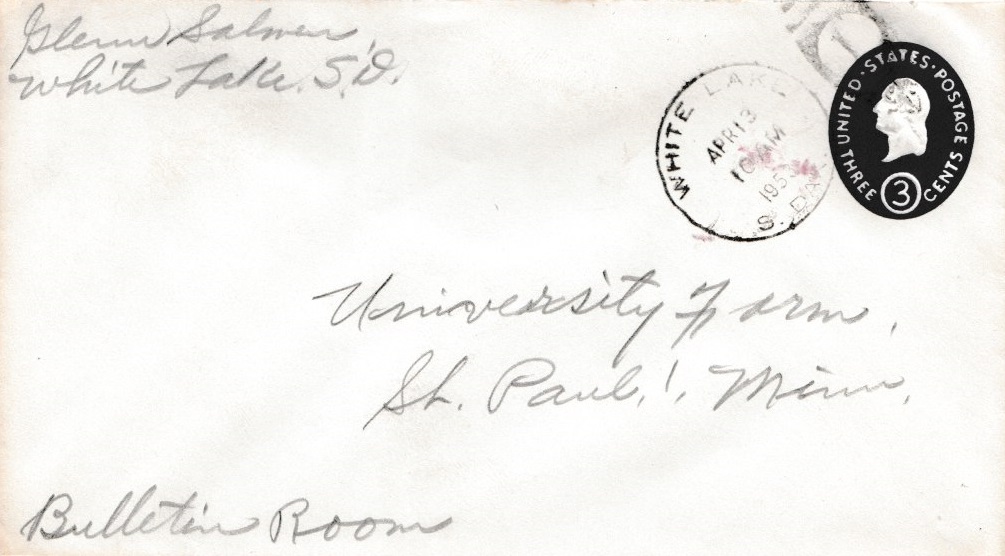 Glenn Salmen,
White Lake, S.D.
WHITE LAKE
APR 13
10 AM
195
S. DAK
UNITED STATES POSTAGE
THREE 3 CENTS
University Farm,
St. Paul, 1, Minn,
Bulletin Room